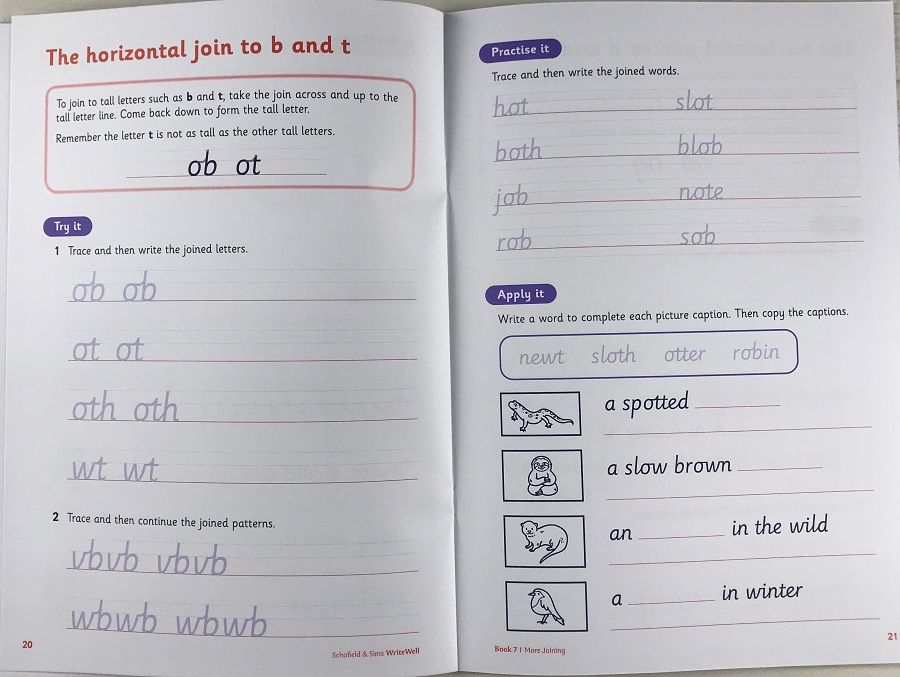 The horizontal join to b and t
To join to tall letters such as b and t, take the join across and up to the
tall letter line. Come back down to form the tall letter.
Remember the letter t is not as tall as the other tall letters.
ob ot
Try it
1 Trace and then write the joined letters.
ob ob
ot ot
oth oth
wt wt
2 Trace and then continue the joined patterns.
vbvb vbvb
wbwb wbwb
20
Schofield & Sims WriteWell
Practise it
Trace and then write the joined words.
hot slot
both blob
job note
rob sob
Apply it
Write a word to complete each picture caption. Then copy the captions.
newt sloth otter robin
a spotted
a slow brown
an in the wild
a in winter
Book 7 | More Joining
21